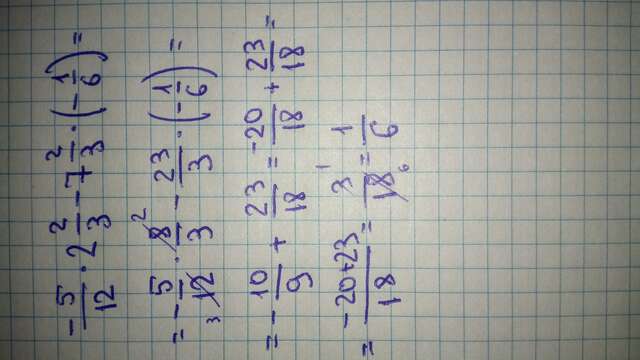 -5/12 · 2 2/3 - 7 2/3 · (-1/6) =
= -5/12 3 · 8 2/3 - 23/3 · (-1/6) =
= -10/9 + 23/18 = -20/18 + 23/18 =
= -20+23/18 = 3 1/18 6 = 1/6